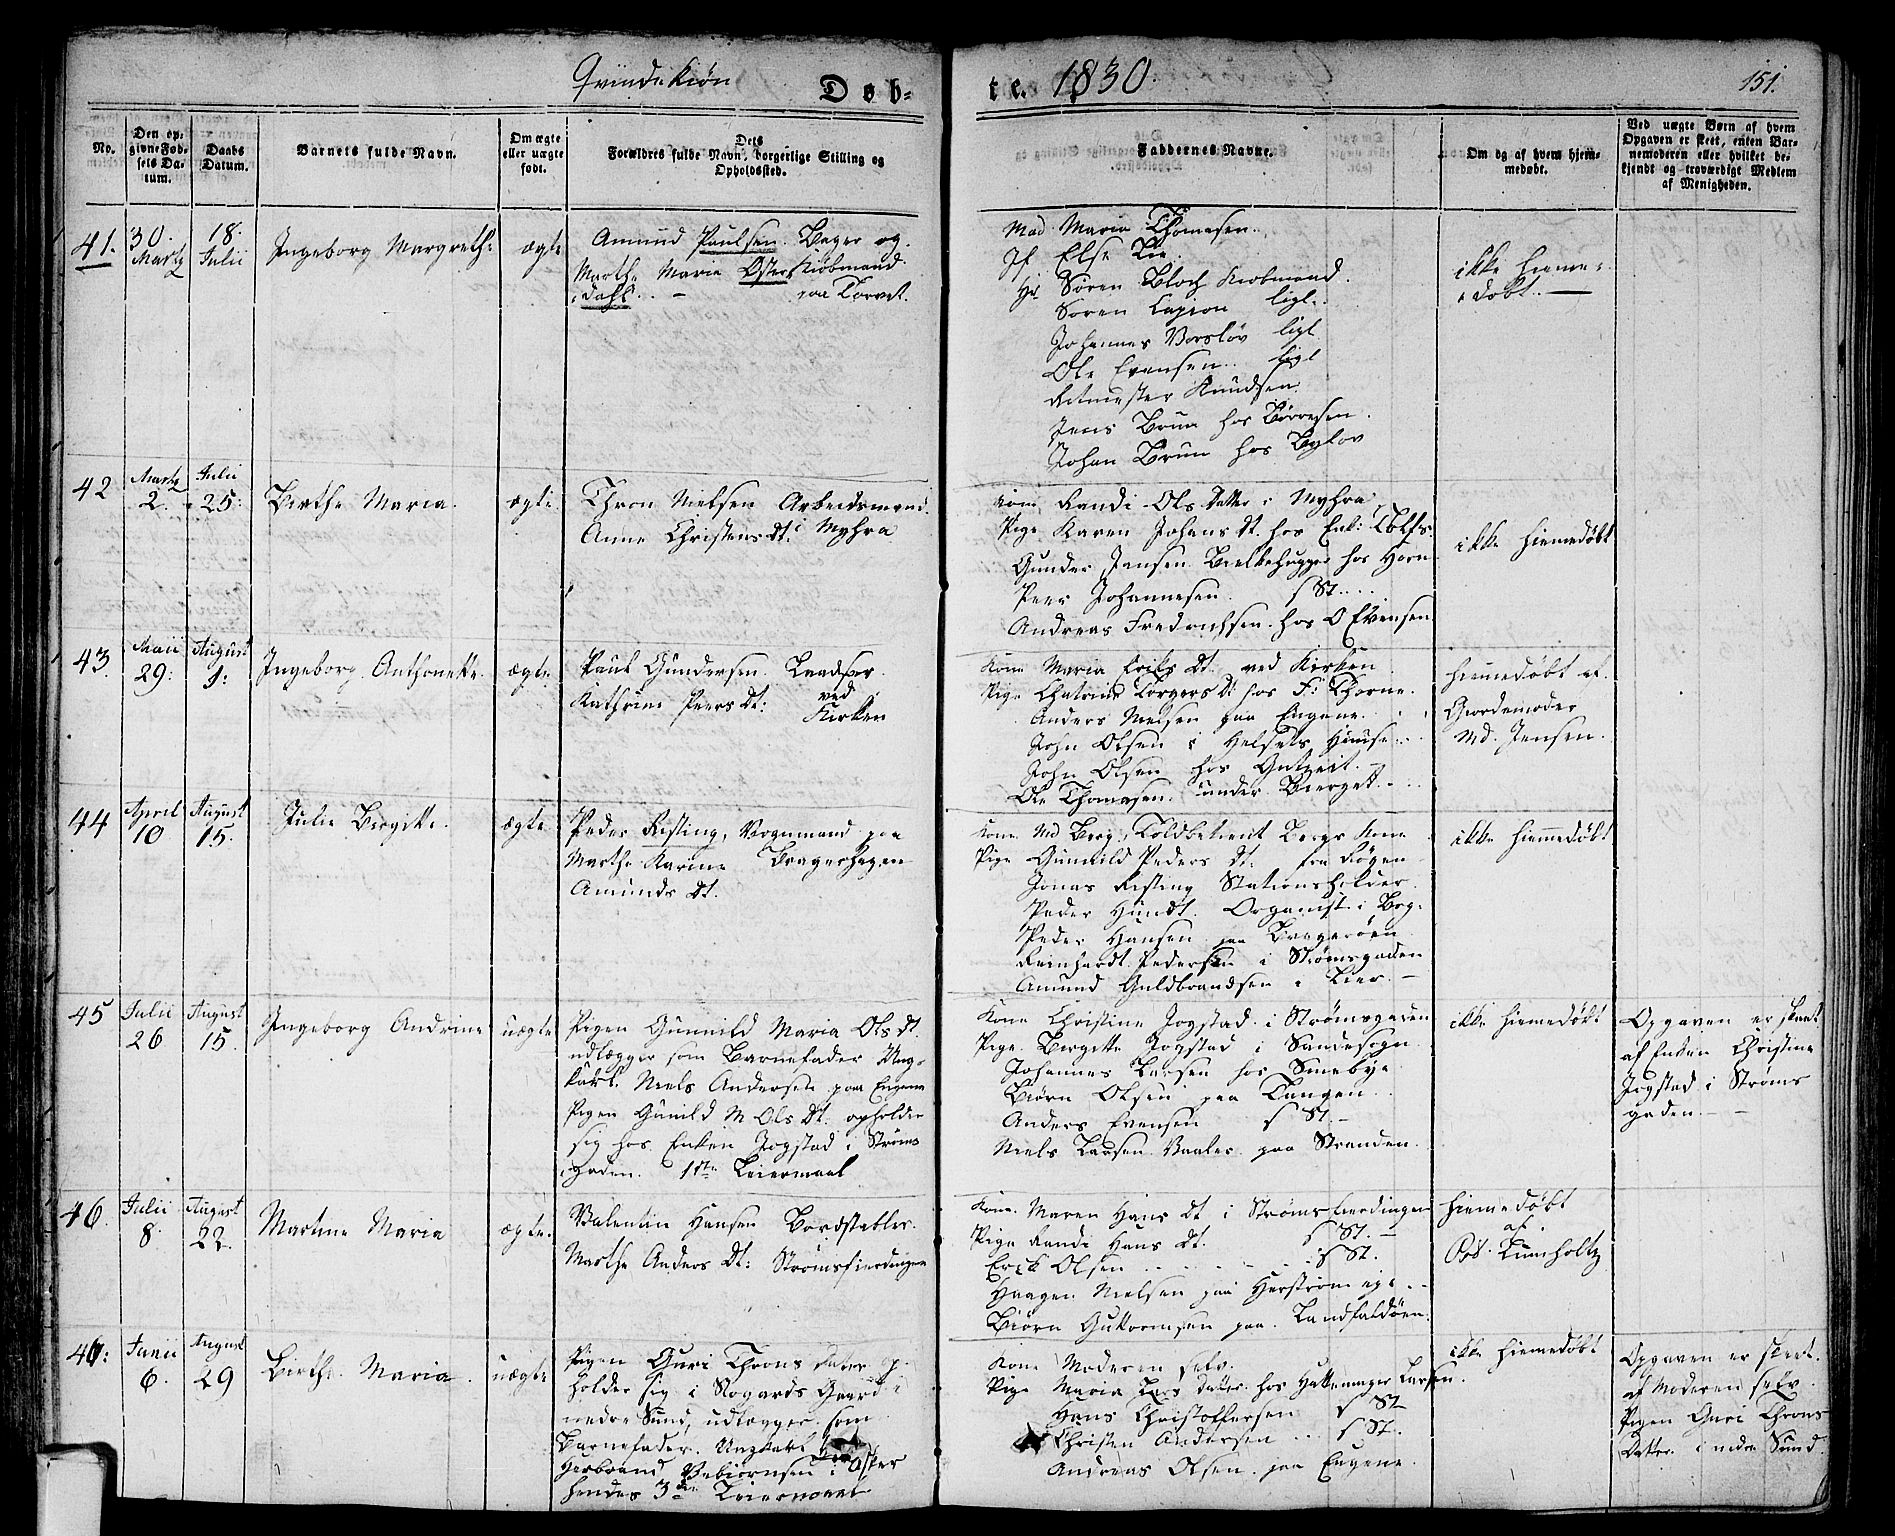 Qvindekiøn
Døb-
te. 1830.
151.
No.
Den op-
givne Fød-
sels Da-
tum.
Daabs
Datum.
Barnets fulde Navn.
Om ægte
eller uægte
født.
Dets
Forældres fulde Navn, borgerlige Stilling og
Opholdssted.
Faddernes Navne.
Om og af hvem hjem-
medøbt.
Ved uægte Børn af hvem
Opgaven er skeet, enten Bar-
nemoderen eller hvilket be-
kjendt og troværdigt Medlem
af Menigheden.
41.
30.
Martz
18.
Julii
Ingeborg Margrethe
ægte
Amund Paulsen. Bager og
Marthe Maria Oster Kiøbmand
dahl. - paa Torvet.
Mad. Maria Thomesen.
Jf. Else Lie.
Hr. Søren Bloch Kiobmand.
Soren ligl.
Johannes Vorsløv ligl
Ole Evensen.. ligl
Ritmester Knudsen
Jens Brun hos Børresen.
Johan Brun hos Bylov
ikke hieme-
døbt. -
42
Martz
2.
Julii
25.
Birthe Maria.
ægte
Thron Nielsen Arbeidsmand.
Anne Christens Dt. i Myhra
Kone Randi Ols Datter i Myhra
Pige Karen Johans Dt. hos Enk:
Gunder Jensen Bielkehugger hos Horn
Peer Johannesen s St....
Andreas Fredrichsen hos O Evensen
ikke hiemedøbt
43.
Maii
29.
August
1.
Ingeborg Anthonette.
ægte.
Paul Gundersen.
Kathrine Peers Dt: ved
Kirken
Kone Maria Eriks Dt. ved Kirken
Pige Chatrine Torgers Dt hos F: Thorne.
Anders Nielsen paa Engene.
John Olsen i Helsets Huuse...
John Olsen hos Gutzeit.
Ole Thomesen. under Bierget....
hiemedøbt af
Giordemoder
Md. Jensen.
44
April
10
August
15.
Julie Birgitte.
ægte
Peder Risting, Vognmand paa
Marthe Karine Bragerhagen
Amunds Dt.
Kone Md Berg, Toldbetient Bergs Kone
Pige Gunnild Peders Dt. fra Røgen
Jonas Risting Stationsholder.
Peder Hundt. Organist i Brg.
Peder Hansen paa Bragerøen
Reinhardt Pedersen i Strømsgaden
Amund Guldbrandsen i Lier. -
ikke hiemmedøbt
45
Julii
26
August
15.
Ingeborg Andrine
uægte
Pigen Gunnild Maria Ols Dt.
udlægger som Barnefader Ung-
karl Niels Andersen paa Engene
Pigen Gunild M Ols Dt. opholder
sig hos Enken Jogstad i Strøms
gaden. 1ste Leiermaal
Kone Christine Jogstad i Strømsgaden
Pige. Birgitte Jogstad i Sandesogn.
Johannes Larsen hos Smebye
Biørn Olsen paa Tangen..
Anders Evensen s St. -
Niels Larsen paa Stranden.
ikke hiemedøbt
Opgaven er skeet
af Enken Christine
Jogstad i Strøms
gaden. -
46.
Julii
8.
August
22.
Martine Maria
ægte.
Valentin Hansen Bordstabler.
Marthe Anders Dt: Strømsfierdingen
Kone. Maren Hans Dt i Strømsfierdingen
Pige Randi Hans Dt. s St. -
Erik Olsen . . . . . s St.
Haagen Nielsen paa Herstrøm eje..
Biørn Guttormsen paa Landfaldøen.
hiemedøbt
af
Lumholtz
47:
Junii
6.
August
29
Birthe Maria.
uægte
Pigen Guri Throns Datter op
holder sig i Nogards Gaard i
nedre Sund, udlægger som
Barnefader. Ungkarl
Herbrand Vebiørnsen i Asker
hendes 3die Leiermaal
Kone Moderen selv.
Pige Maria Lars Datter hos Hattemager Larsen.
Hans Christoffersen s St
Christen Andersen ... s St.
Andreas Olsen. paa Engene.
ikke hiemedøbt
Opgaven er skeet.
af Moderen selv.
Pigen Guri Throns
Datter i nedre Sund.